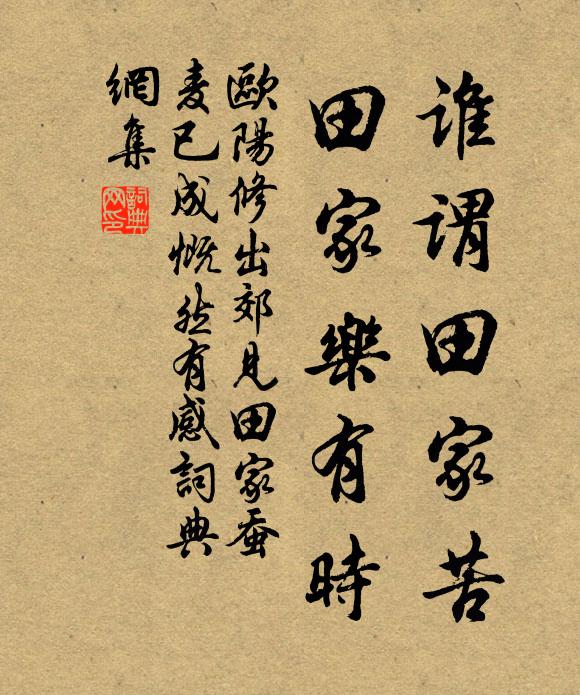 誰謂田家苦
田家樂有時
歐陽修出郊見田家蚕
麦已成慨然有感詞典
網集
詞典網印